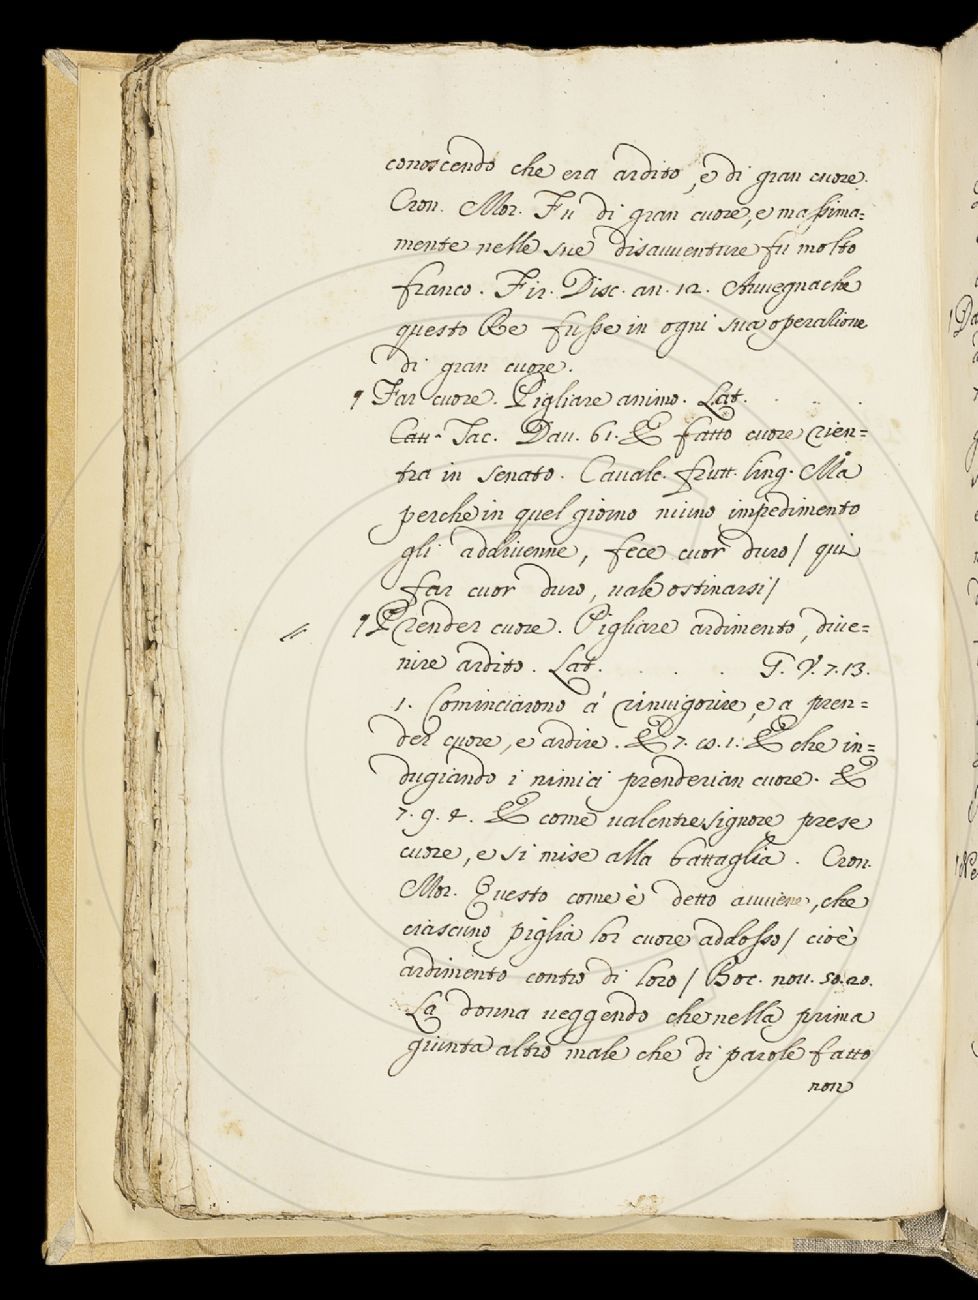 conoscendo che era ardito, e di gran cuore.
Cron. Mor. Fu di gran cuore, e massima=
mente nelle sue disauuenture fu molto
franco. Fir. Disc. an. 12. Auuegnache
questo Re fusse in ogni sua operatione
di gran cuore.
¶ Far cuore. Pigliare animo. Lat. . . . .
Tac. Dau. 61. E fatto cuore rien=
tra in senato. Caualc. frutt. ling. Ma
perche in quel giorno niuno impedimento
gli addiuenne, fece cuor duro / qui
far cuor duro, uale ostinarsi /
¶ Prender cuore. Pigliare ardimento, diue=
nire ardito. Lat. . . . . G. V. 7. 13.
1. Cominciarono à rinuigorire, e a pren=
der cuore, e ardire. E 7. 1. E che in=
dugiando i nimici prenderian cuore. E
7. 9. 4. E come ualentre signore prese
cuore, e si mise alla battaglia. Cron.
Mor. Questo come è detto auuiene, che
ciascuno piglia lor cuore addosso / cioè
ardimento contro di loro / Boc. nou. 50. 20.
La donna ueggendo che nella prima
giunta altro male che di parole fatto
non